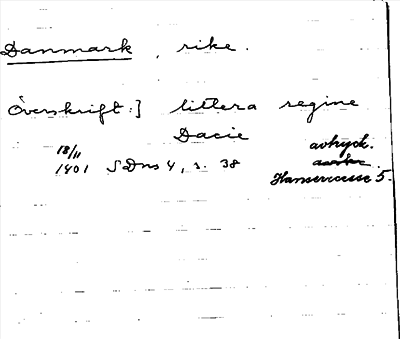 Danmark, rike.
Överskrift:] littera regine
Dacie
18/11
1401 SDns 4, s. 38
avtryck.
Hanserecesse 5.